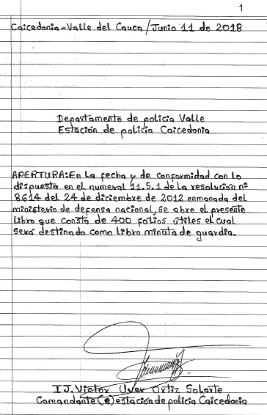 1
Caicedonia-Valle del Cauca/Junio 11 de 2018
Departamento de policia Valle
Estación de policia Caicedonia
APERTURA: En La fecha y de conformidad con lo
dispuesto en el numeral 11.5.1 de La resolución nº
8614 del 24 de diciembre de 2012 enmanada del
ministerio de defensa nacional, se abre el presente
Libro que consta de 400 folios útiles el cual
será destinado como Libro minuta de guardia.
IJ. Victor Uver Ortiz Solarte
Comandante (e) estación de policia Caicedonia